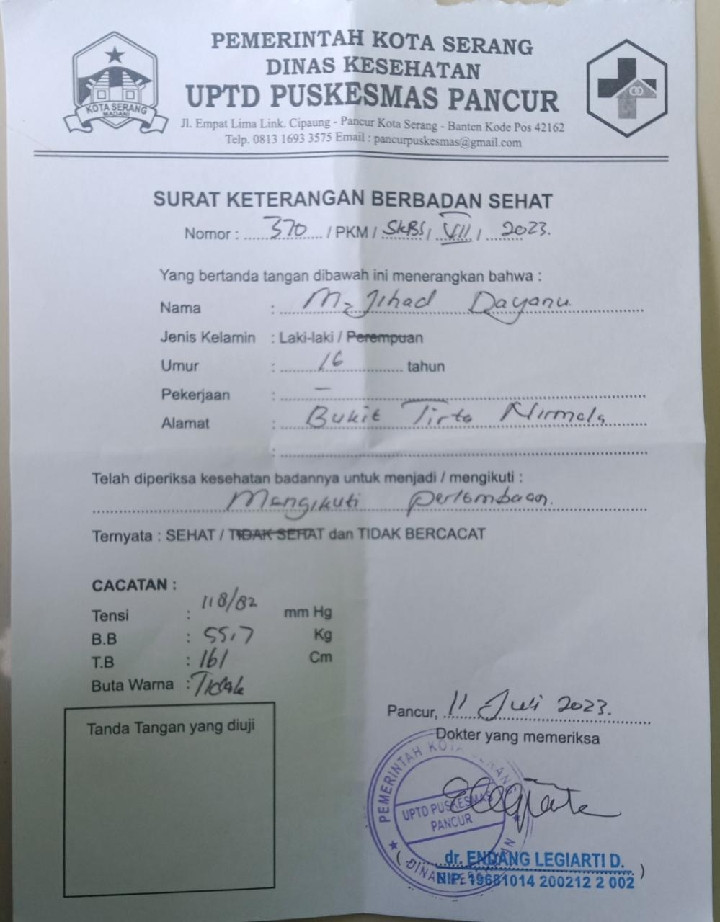 PEMERINTAH KOTA SERANG
DINAS KESEHATAN
UPTD PUSKESMAS PANCUR
Jl. Empat Lima Link. Cipaung - Pancur Kota Serang - Banten Kode Pos 42162
Telp. 0813 1693 3575 Email : pancurpuskesmas@gmail.com
KOTA SERANG
MADANI
SURAT KETERANGAN BERBADAN SEHAT
Nomor : 370 / PKM / SKBS / VII / 2023.
Yang bertanda tangan dibawah ini menerangkan bahwa :
Nama : M. Jihad Dayanu
Jenis Kelamin : Laki-laki / Perempuan
Umur : 16 tahun
Pekerjaan : –
Alamat : Bukit Tirta Nirmala
:
Telah diperiksa kesehatan badannya untuk menjadi / mengikuti :
Mengikuti perlombaan.
Ternyata : SEHAT / TIDAK SEHAT dan TIDAK BERCACAT
CACATAN :
Tensi : 118/82 mm Hg
B.B : 55,7 Kg
T.B : 161 Cm
Buta Warna : Tidak
Tanda Tangan yang diuji
Pancur, 11 Juli 2023.
Dokter yang memeriksa
PEMERINTAH KOTA SERANG
UPTD PUSKESMAS
PANCUR
DINAS KESEHATAN
( dr. ENDANG LEGIARTI D. )
NIP. 19681014 200212 2 002